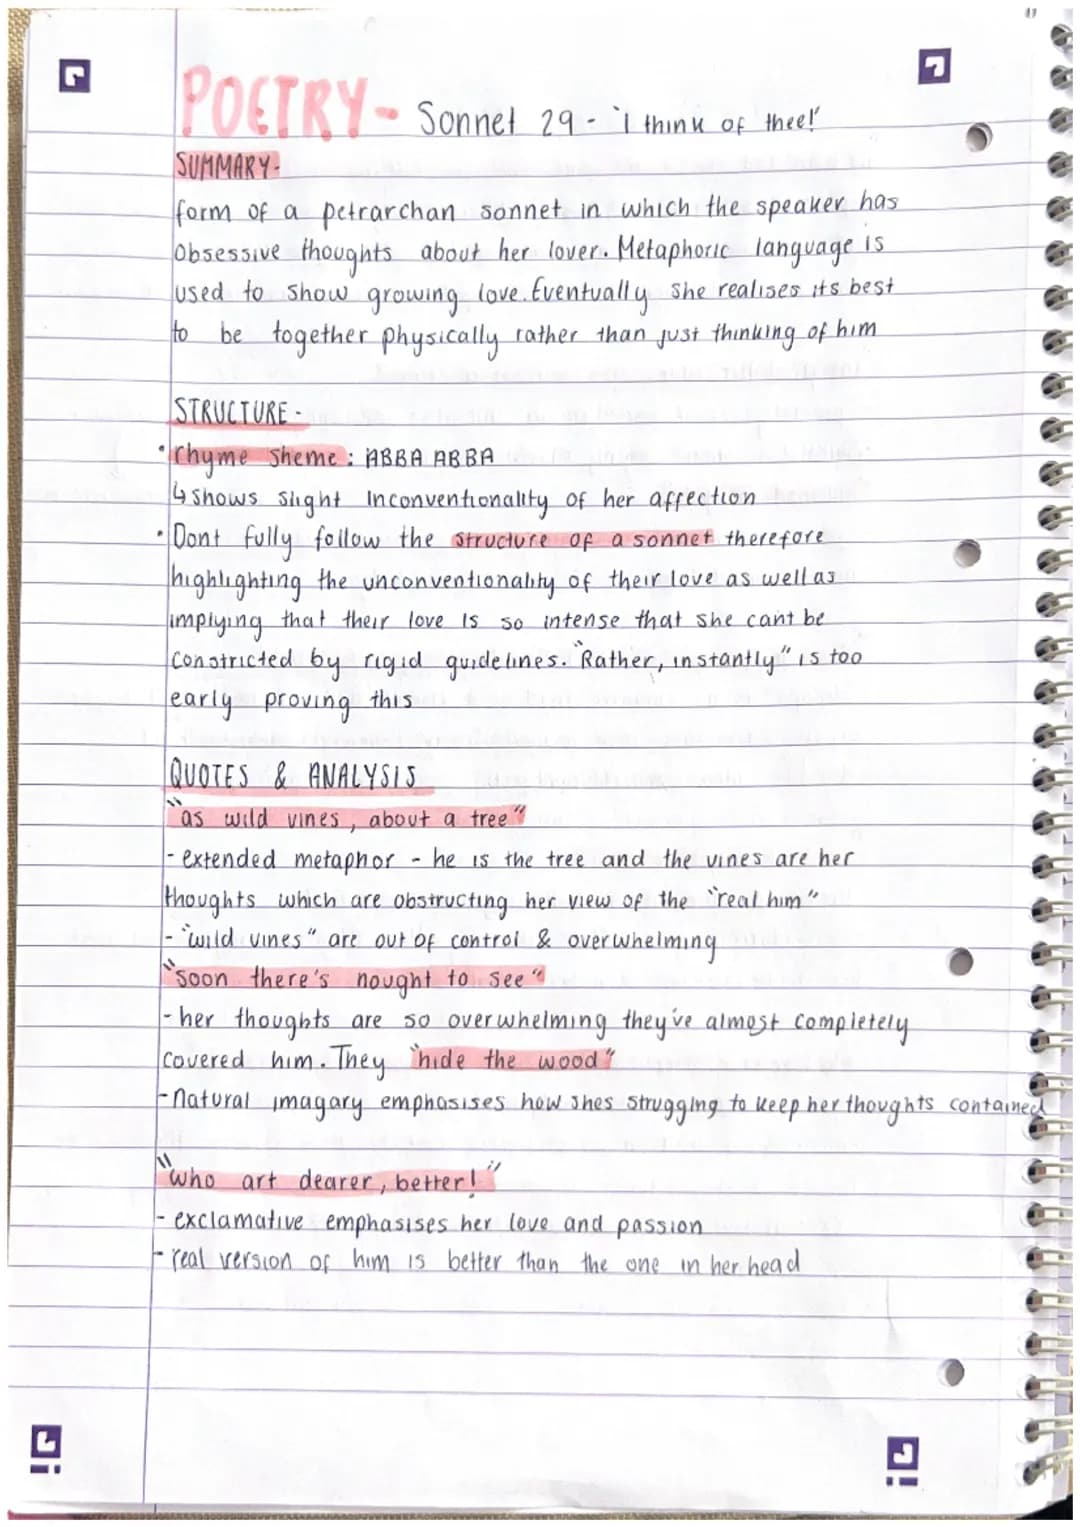 POETRY- Sonnet 29 - 'i think of thee!'
SUMMARY-
form of a petrarchan sonnet in which the speaker has
obsessive thoughts about her lover. Metaphoric language is
used to show growing love. Eventually she realises its best
to be together physically rather than just thinking of him
STRUCTURE -
• rhyme sheme : ABBA ABBA
↳ shows slight inconventionality of her affection
• Dont fully follow the structure of a sonnet therefore
highlighting the unconventionality of their love as well as
implying that their love is so intense that she cant be
constricted by rigid guidelines. "Rather, instantly" is too
early proving this
QUOTES & ANALYSIS
"as wild vines, about a tree"
- extended metaphor - he is the tree and the vines are her
thoughts which are obstructing her view of the "real him"
- "wild vines" are out of control & overwhelming
"soon there's nought to see"
- her thoughts are so overwhelming they've almost completely
covered him. They "hide the wood"
- natural imagary emphasises how shes strugging to keep her thoughts contained
"who art dearer, better!"
- exclamative emphasises her love and passion
- real version of him is better than the one in her head